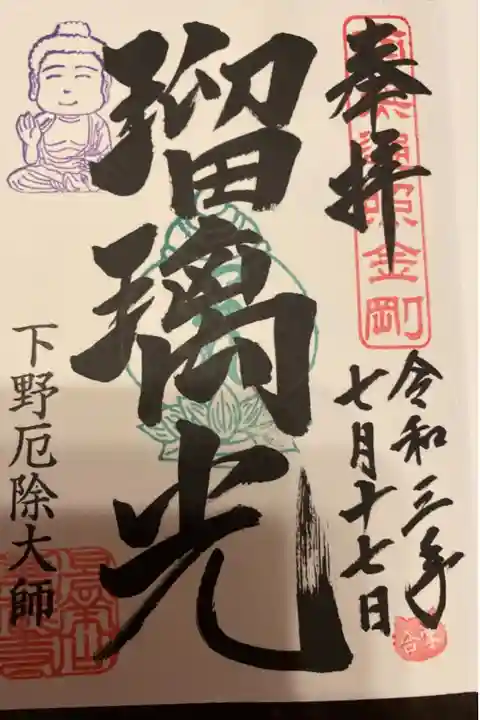 奉拝
南無遍照金剛
令和三年
七月十七日
瑠璃光
下野厄除大師